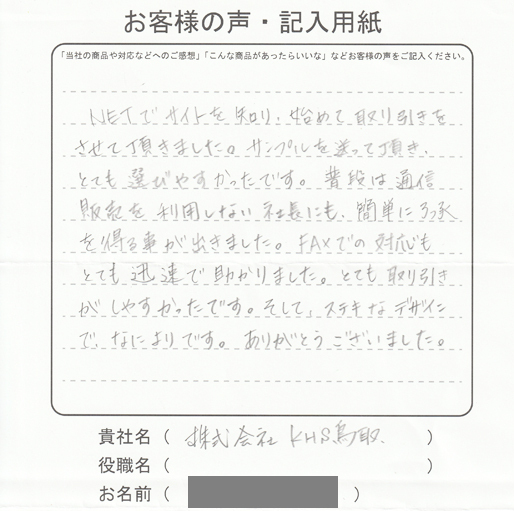 お客様の声・記入用紙
「当社の商品や対応などへのご感想」「こんな商品があったらいいな」などお客様の声をご記入ください。
NETでサイトを知り、始めて取り引きを
させて頂きました。サンプルを送って頂き、
とても選びやすかったです。普段は通信
販売を利用しない社長にも、簡単に了承
を得る事が出きました。FAXでの対応も
とても迅速で助かりました。とても取り引き
がしやすかったです。そして、ステキなデザイン
で、なによりです。ありがとうございました。
貴社名(株式会社KHS鳥取)
役職名()
お名前()